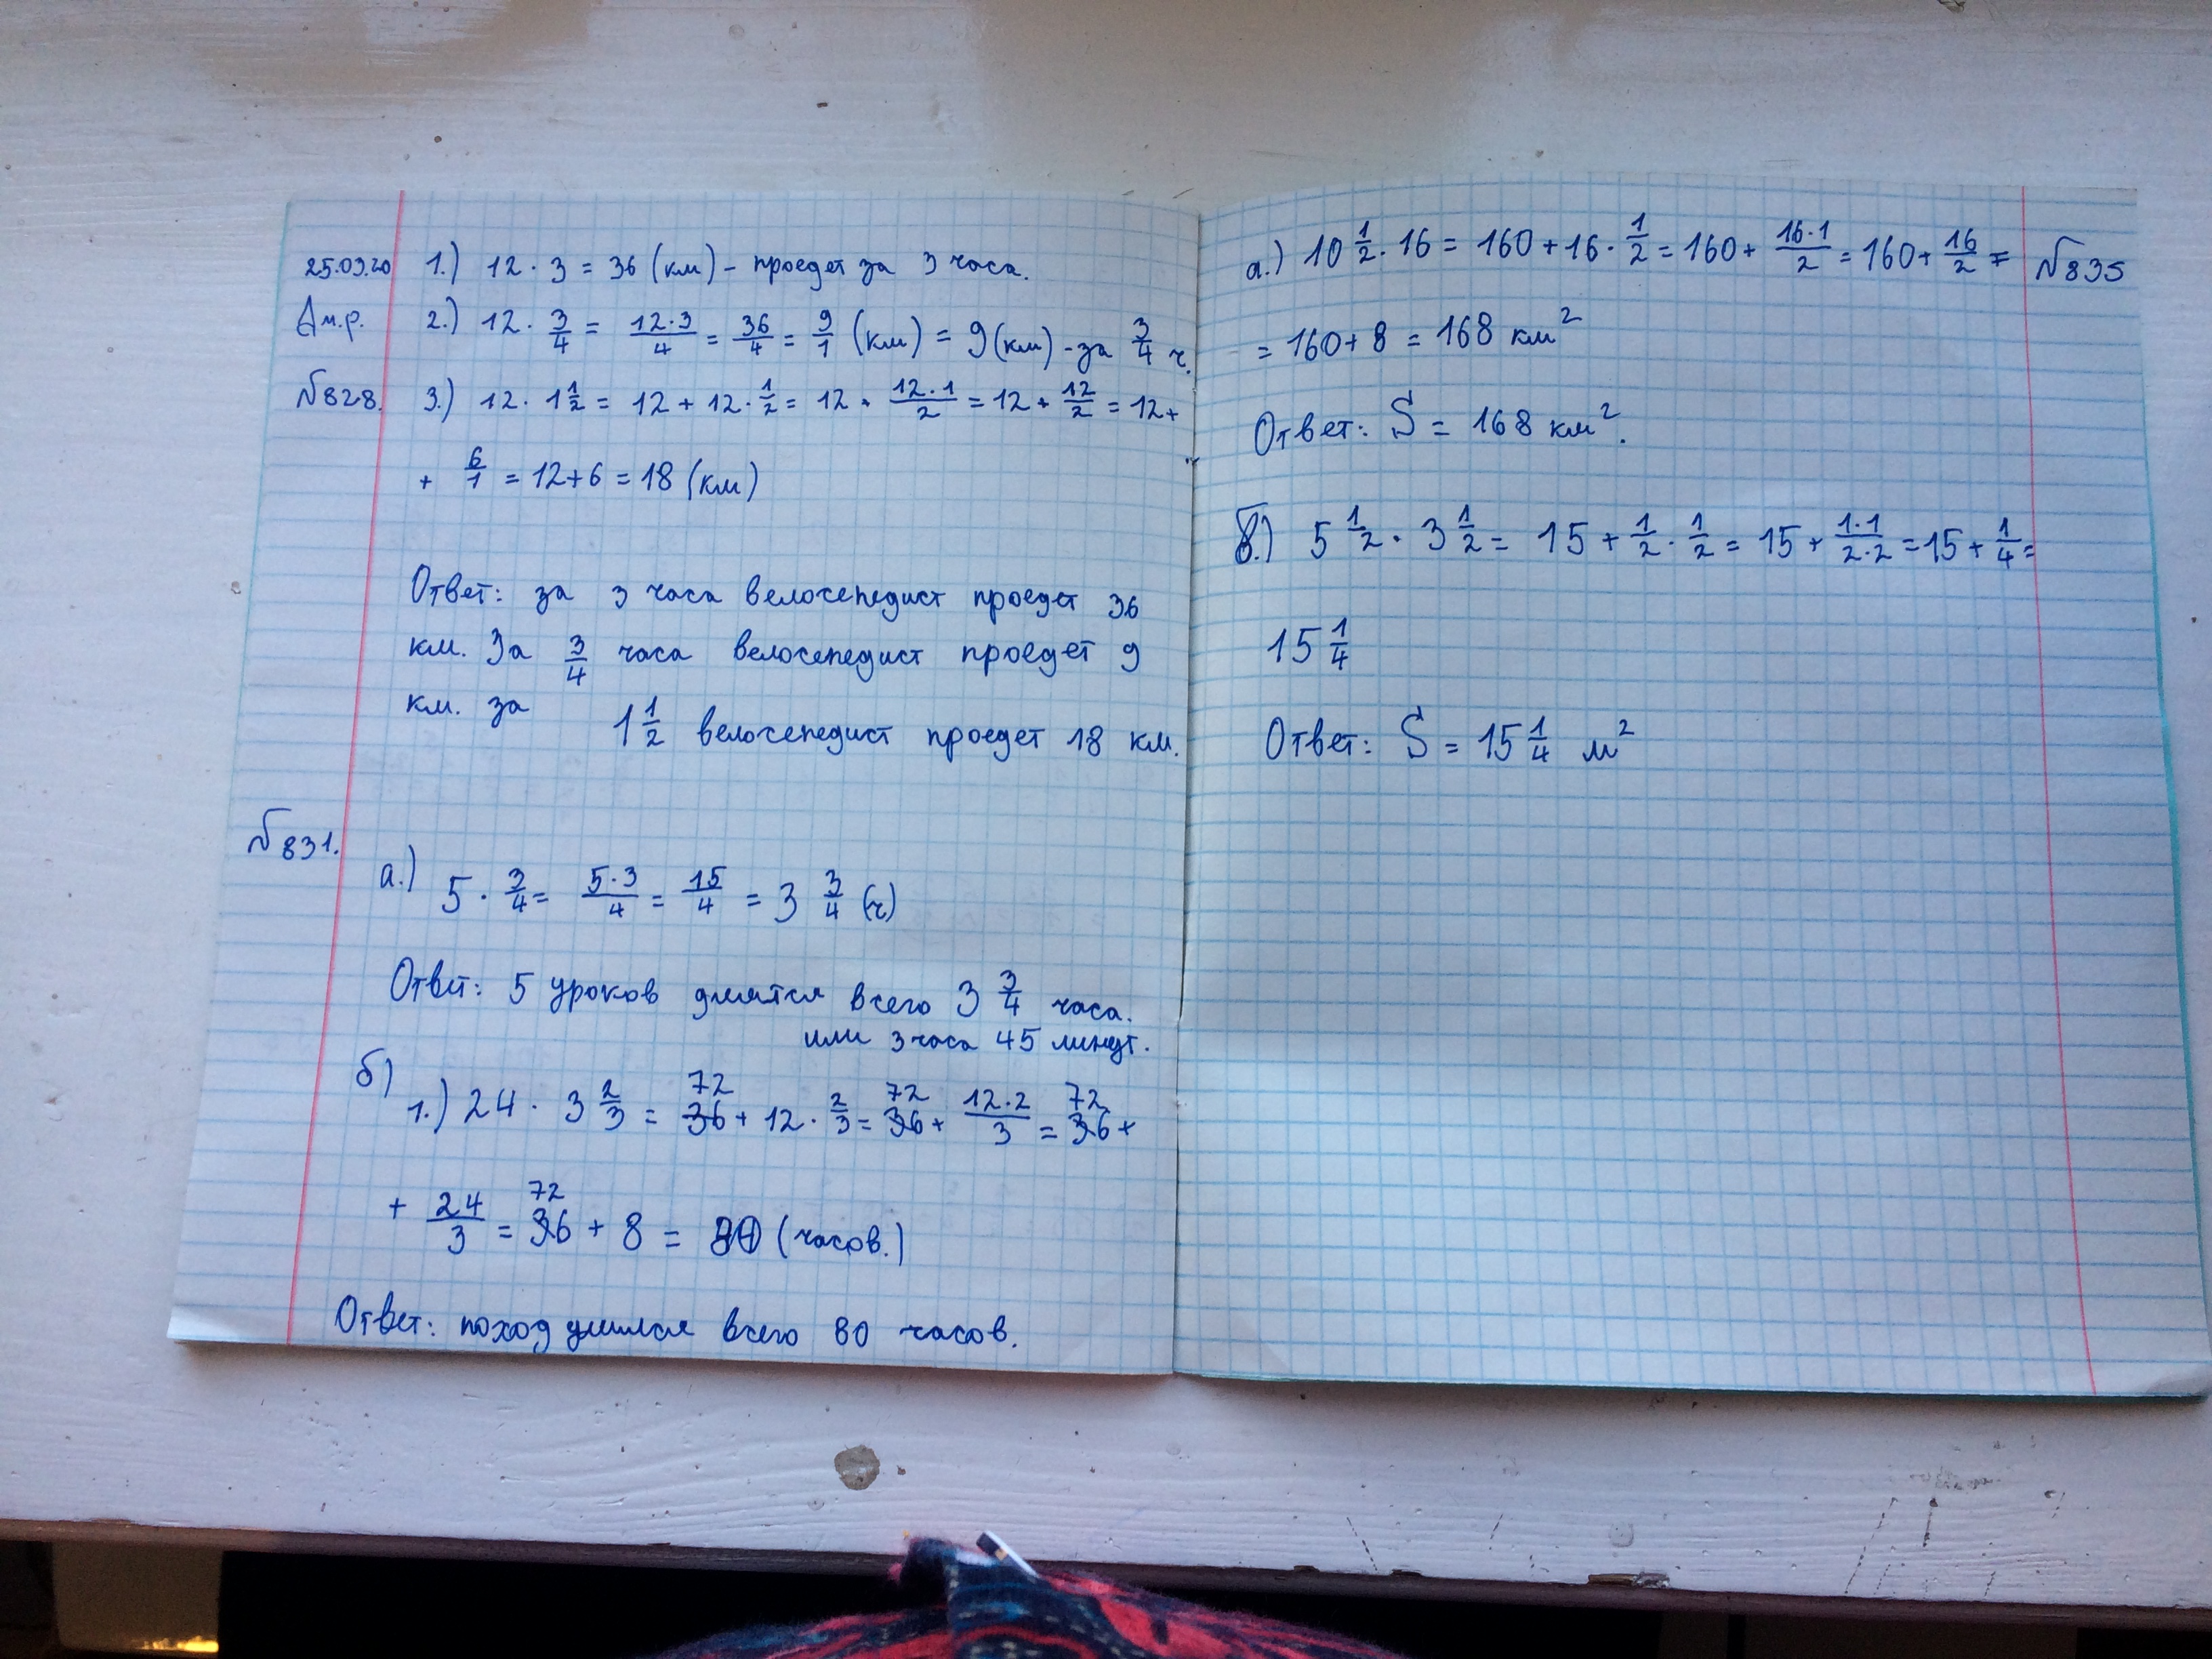 25.03.20 1.) 12 · 3 = 36 (км) - проедет за 3 часа.
Дм.р. 2.) 12 · 3/4 = 12·3/4 = 36/4 = 9/1 (км) = 9(км) - за 3/4 ч.
№828. 3.) 12 · 1 1/2 = 12 + 12 · 1/2 = 12 + 12·1/2 = 12 + 12/2 = 12 +
+ 6/1 = 12+6 = 18 (км)
Ответ: за 3 часа велосепедист проедет 36
км. За 3/4 часа велосепедист проедет 9
км. за
1 1/2 велосепедист проедет 18 км.
№831.
а.) 5 · 3/4 = 5·3/4 = 15/4 = 3 3/4 (ч)
Ответ: 5 уроков длятся всего 3 3/4 часа.
или 3 часа 45 минут.
б) 72 72 72
1.) 24 · 3 2/3 = 36 + 12 · 2/3 = 36 + 12·2/3 = 36 +
72
+ 24/3 = 36 + 8 = 80 (часов.)
Ответ: поход длился всего 80 часов.
а.) 10 1/2 · 16 = 160 + 16 · 1/2 = 160 + 16·1/2 = 160 + 16/2 = №835
= 160 + 8 = 168 км²
Ответ: S = 168 км².
б.) 5 1/2 · 3 1/2 = 15 + 1/2 · 1/2 = 15 + 1·1/2·2 = 15 + 1/4 =
15 1/4
Ответ: S = 15 1/4 м²